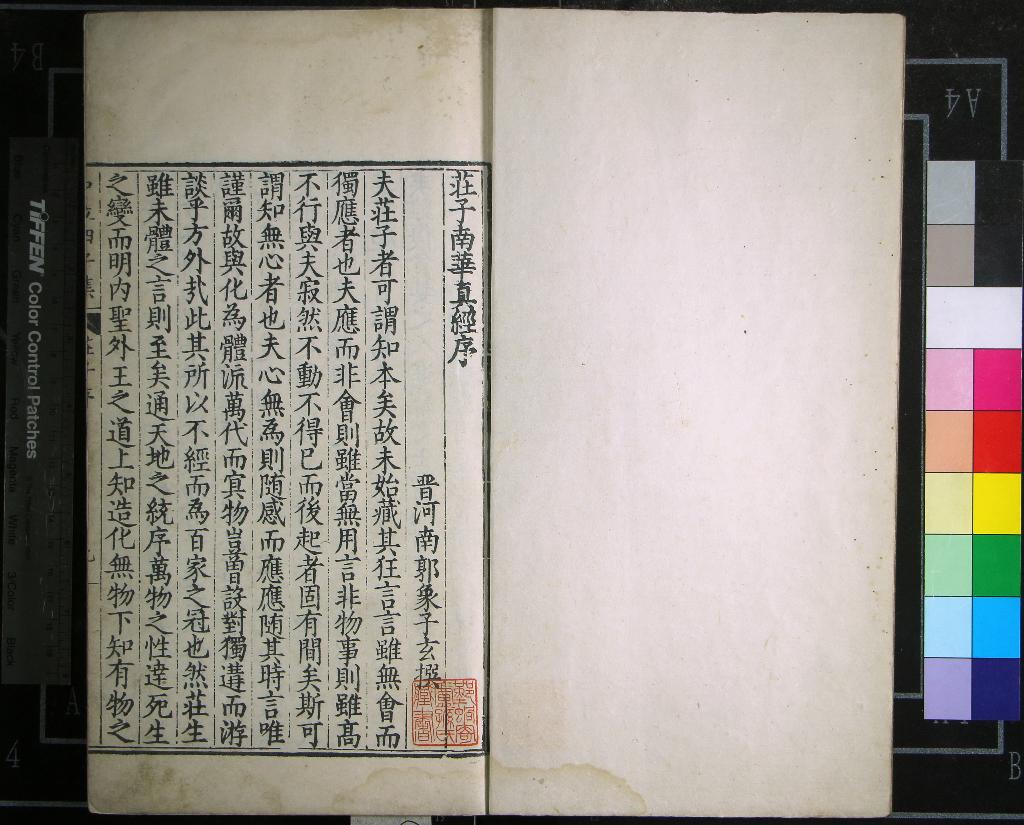 莊子南華真經序
晉河南郭象子玄撰
夫莊子者可謂知本矣故未始藏其狂言言雖無會而
獨應者也夫應而非會則雖當無用言非物事則雖高
不行與夫寂然不動不得已而後起者固有間矣斯可
謂知無心者也夫心無為則隨感而應應隨其時言唯
謹爾故與化為體流萬代而冥物豈曽設對獨遘而游
談乎方外㢤此其所以不經而為百家之冠也然莊生
雖未體之言則至矣通天地之統序萬物之性達死生
之變而明內聖外王之道上知造化無物下知有物之
TIFFEN Color Control Patches
A4
B4
4
A
B